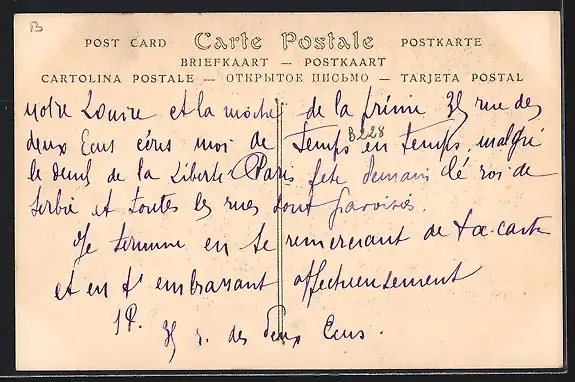 B
POST CARD Carte Postale POSTKARTE
BRIEFKAART — POSTKAART
CARTOLINA POSTALE — ОТКРЫТОЕ ПИСЬМО — TARJETA POSTAL
notre Louise et la moche de la prime 35 rue des
deux Ecus écris moi de Temps en Temps, malgré
B228
le deuil de la Liberté Paris fete demain le roi de
Serbie et toutes les rues sont pavoisés.
Je termine en te remerciant de ta carte
et en t'embrassant affectueusement
35 r. des deux Ecus.